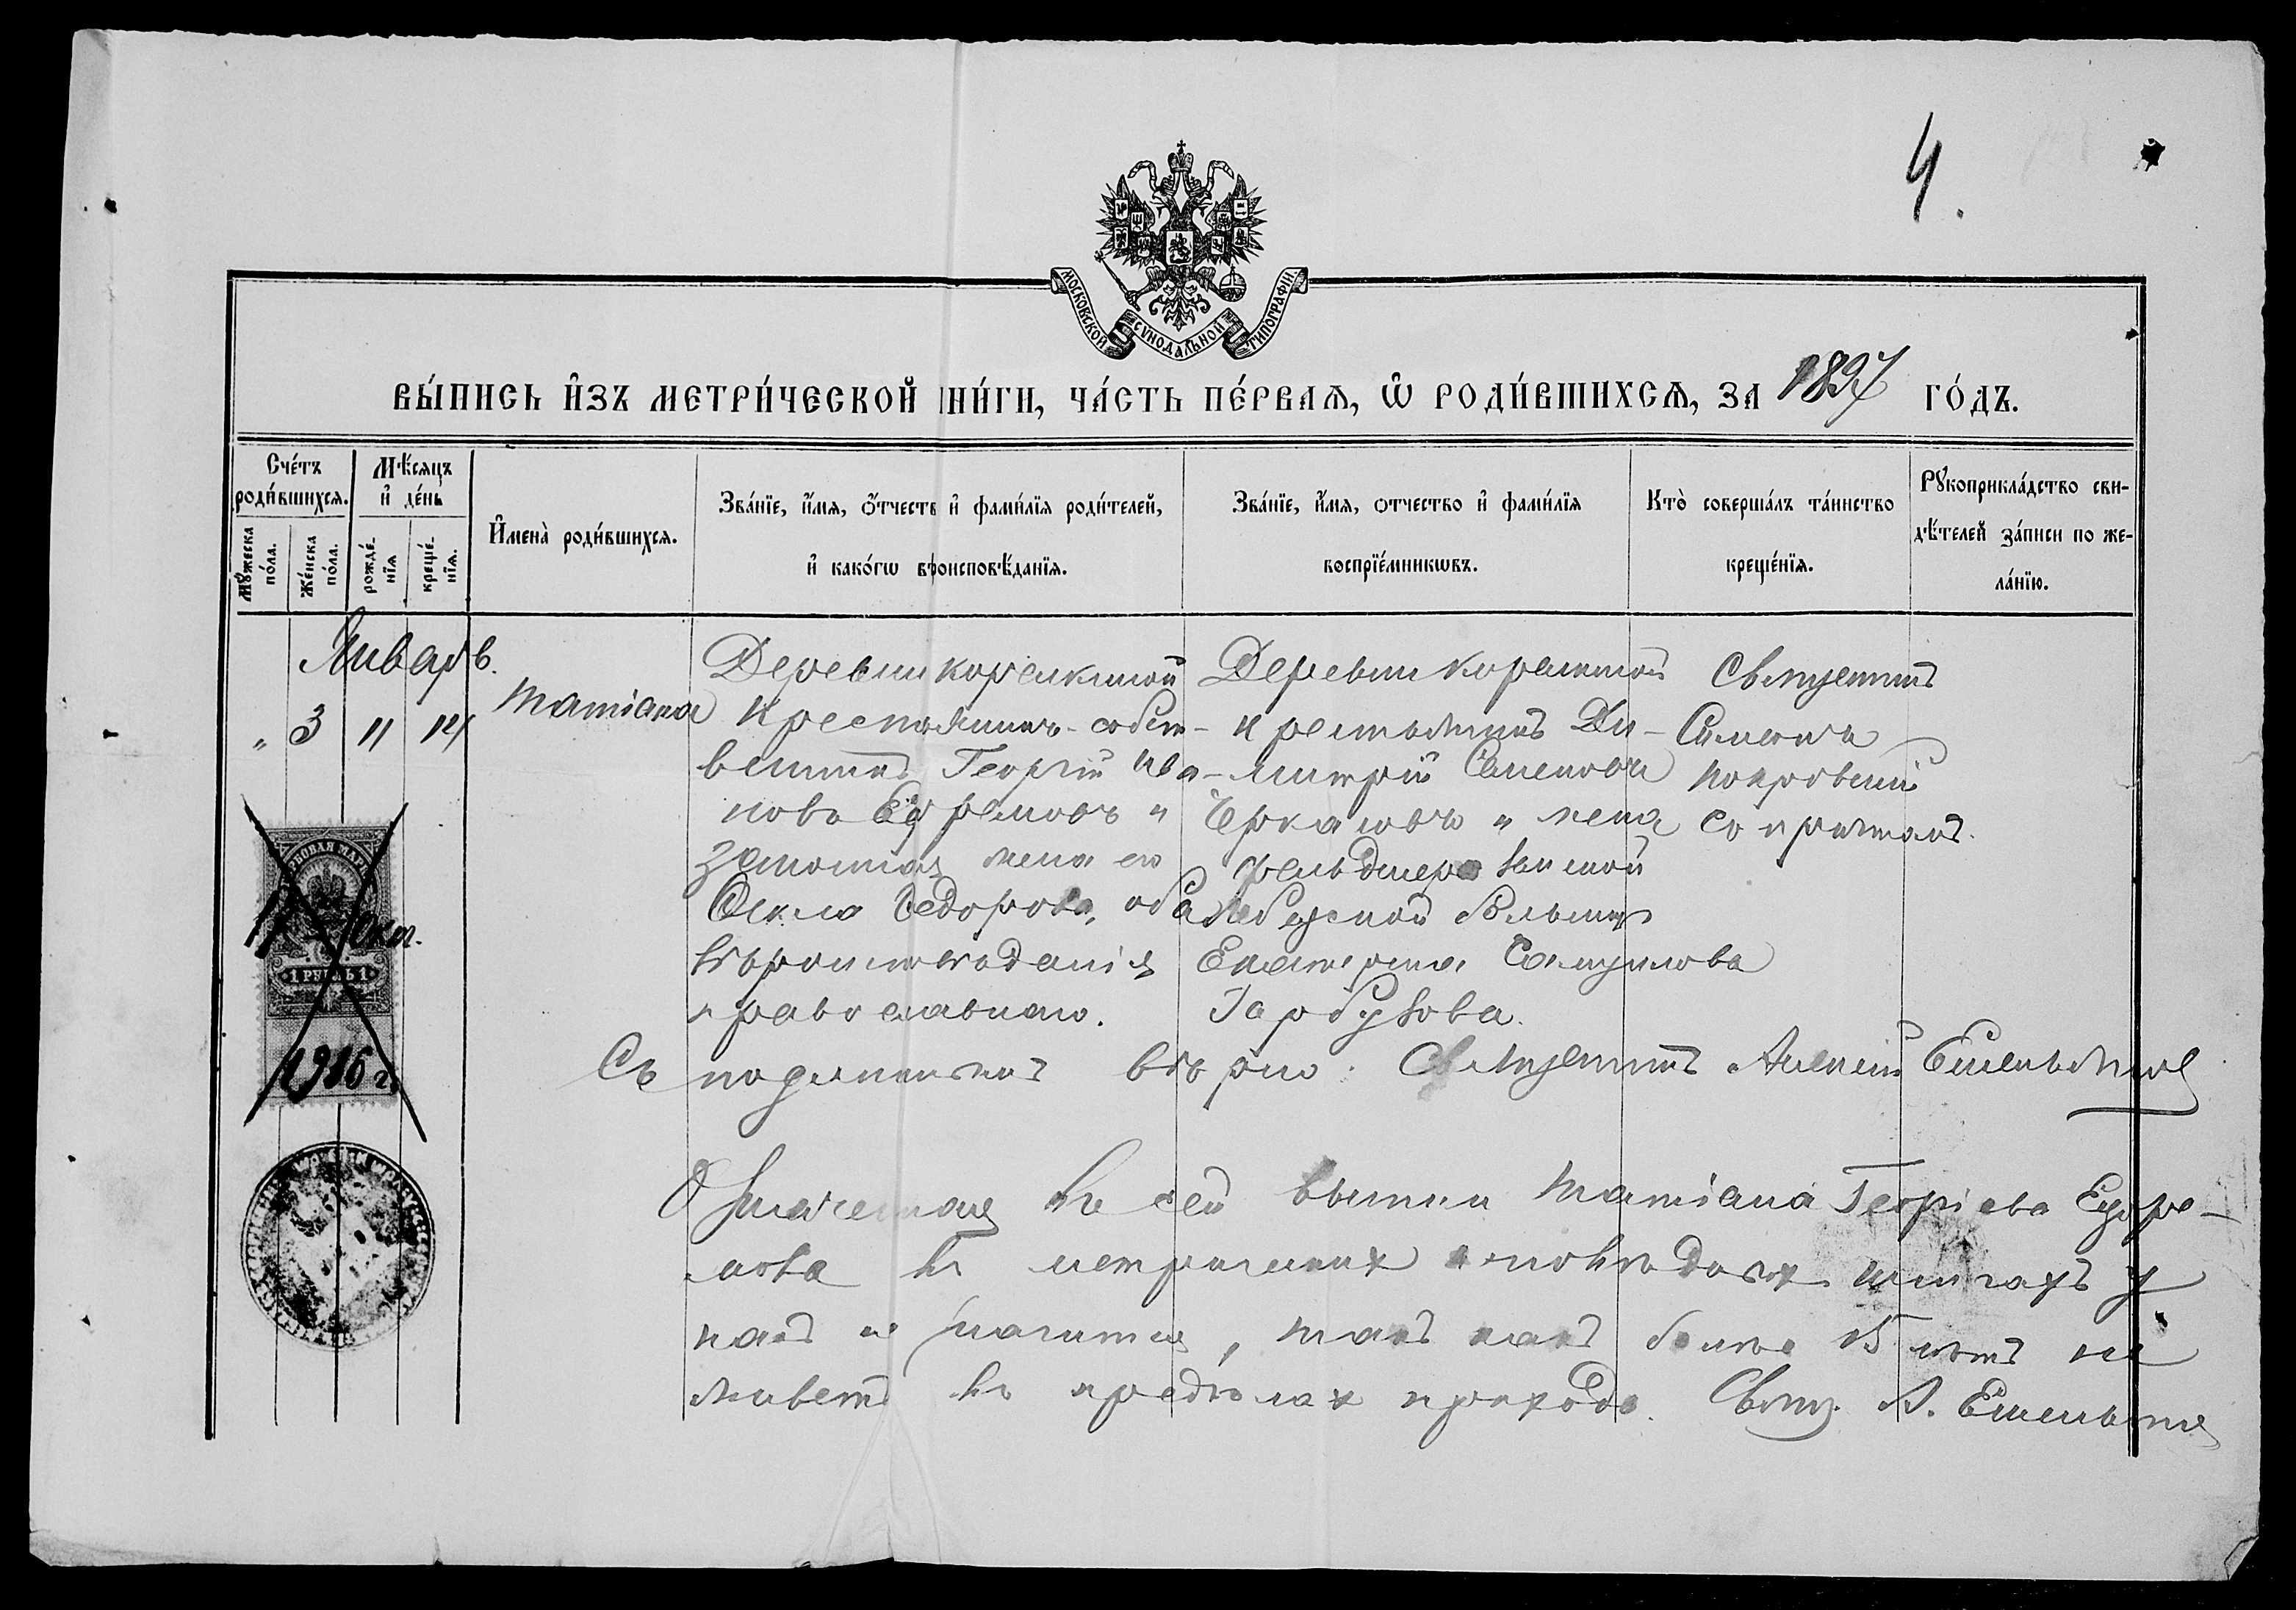 4.
МОСКОВСКОЙ СѴНОДАЛЬНОЙ ТИПОГРАФІИ.
ВЫ́ПИСЬ И҆ЗЪ МЕТРИ́ЧЕСКОЙ НИ́ГИ, ЧА́СТЬ ПЕ́РВАѦ, Ѡ҆ РОДИ́ВШИХСѦ, ЗА 1897 ГО́ДЪ.
Сче́тъ роди́вшихсѧ.
Мꙋ́жеска по́ла.
Же́нска по́ла.
Мѣ́сѧцъ и҆ де́нь
рожде́-нїѧ
креще́-нїѧ.
И҆мена̀ роди́вшихсѧ.
Зва́нїе, и҆́мѧ, ѻ҆́тчеств и҆ фами́лїѧ роди́телей,
и҆ како́гѡ вроисповѣ́данїѧ.
Зва́нїе, и҆́мѧ, отчество и҆ фами́лїѧ
воспрїе́мникѡвъ.
Кто̀ совершалъ та́инство
креще́нїѧ.
Рꙋкоприкла́дство сви-
дѣ́телей за́писи по же-
ла́нїю.
Январь.
" 3 11 12
Татіана
Деревни
Крестьянинъ-собст-
венникъ Георгій Ива-
новъ Ефремовъ и
законная жена его
Ѳекла Ѳедорова, оба
вѣроисповѣданія
православнаго.
Деревни
крестьянинъ Ди-
митрій Семеновъ
Черкасовъ и жена
фельдшера земской
больницы
Екатерина Самуилова
Гарбузова.
Священникъ
Симеонъ
Покровскій
съ причтомъ.
ГЕРБОВАЯ МАРКА
17 Окт.
1 РУБЛЬ 1
1916 г.
Съ подлиннымъ вѣрно: Священникъ Алексій Емельяновъ
Означенная въ сей выписи Татіана Георгіева Ефре-
мова въ метрическихъ книгахъ у
насъ не значится, такъ какъ болѣе 15 лѣтъ не
живетъ въ предѣлахъ прихода. Свящ. А. Емельяновъ